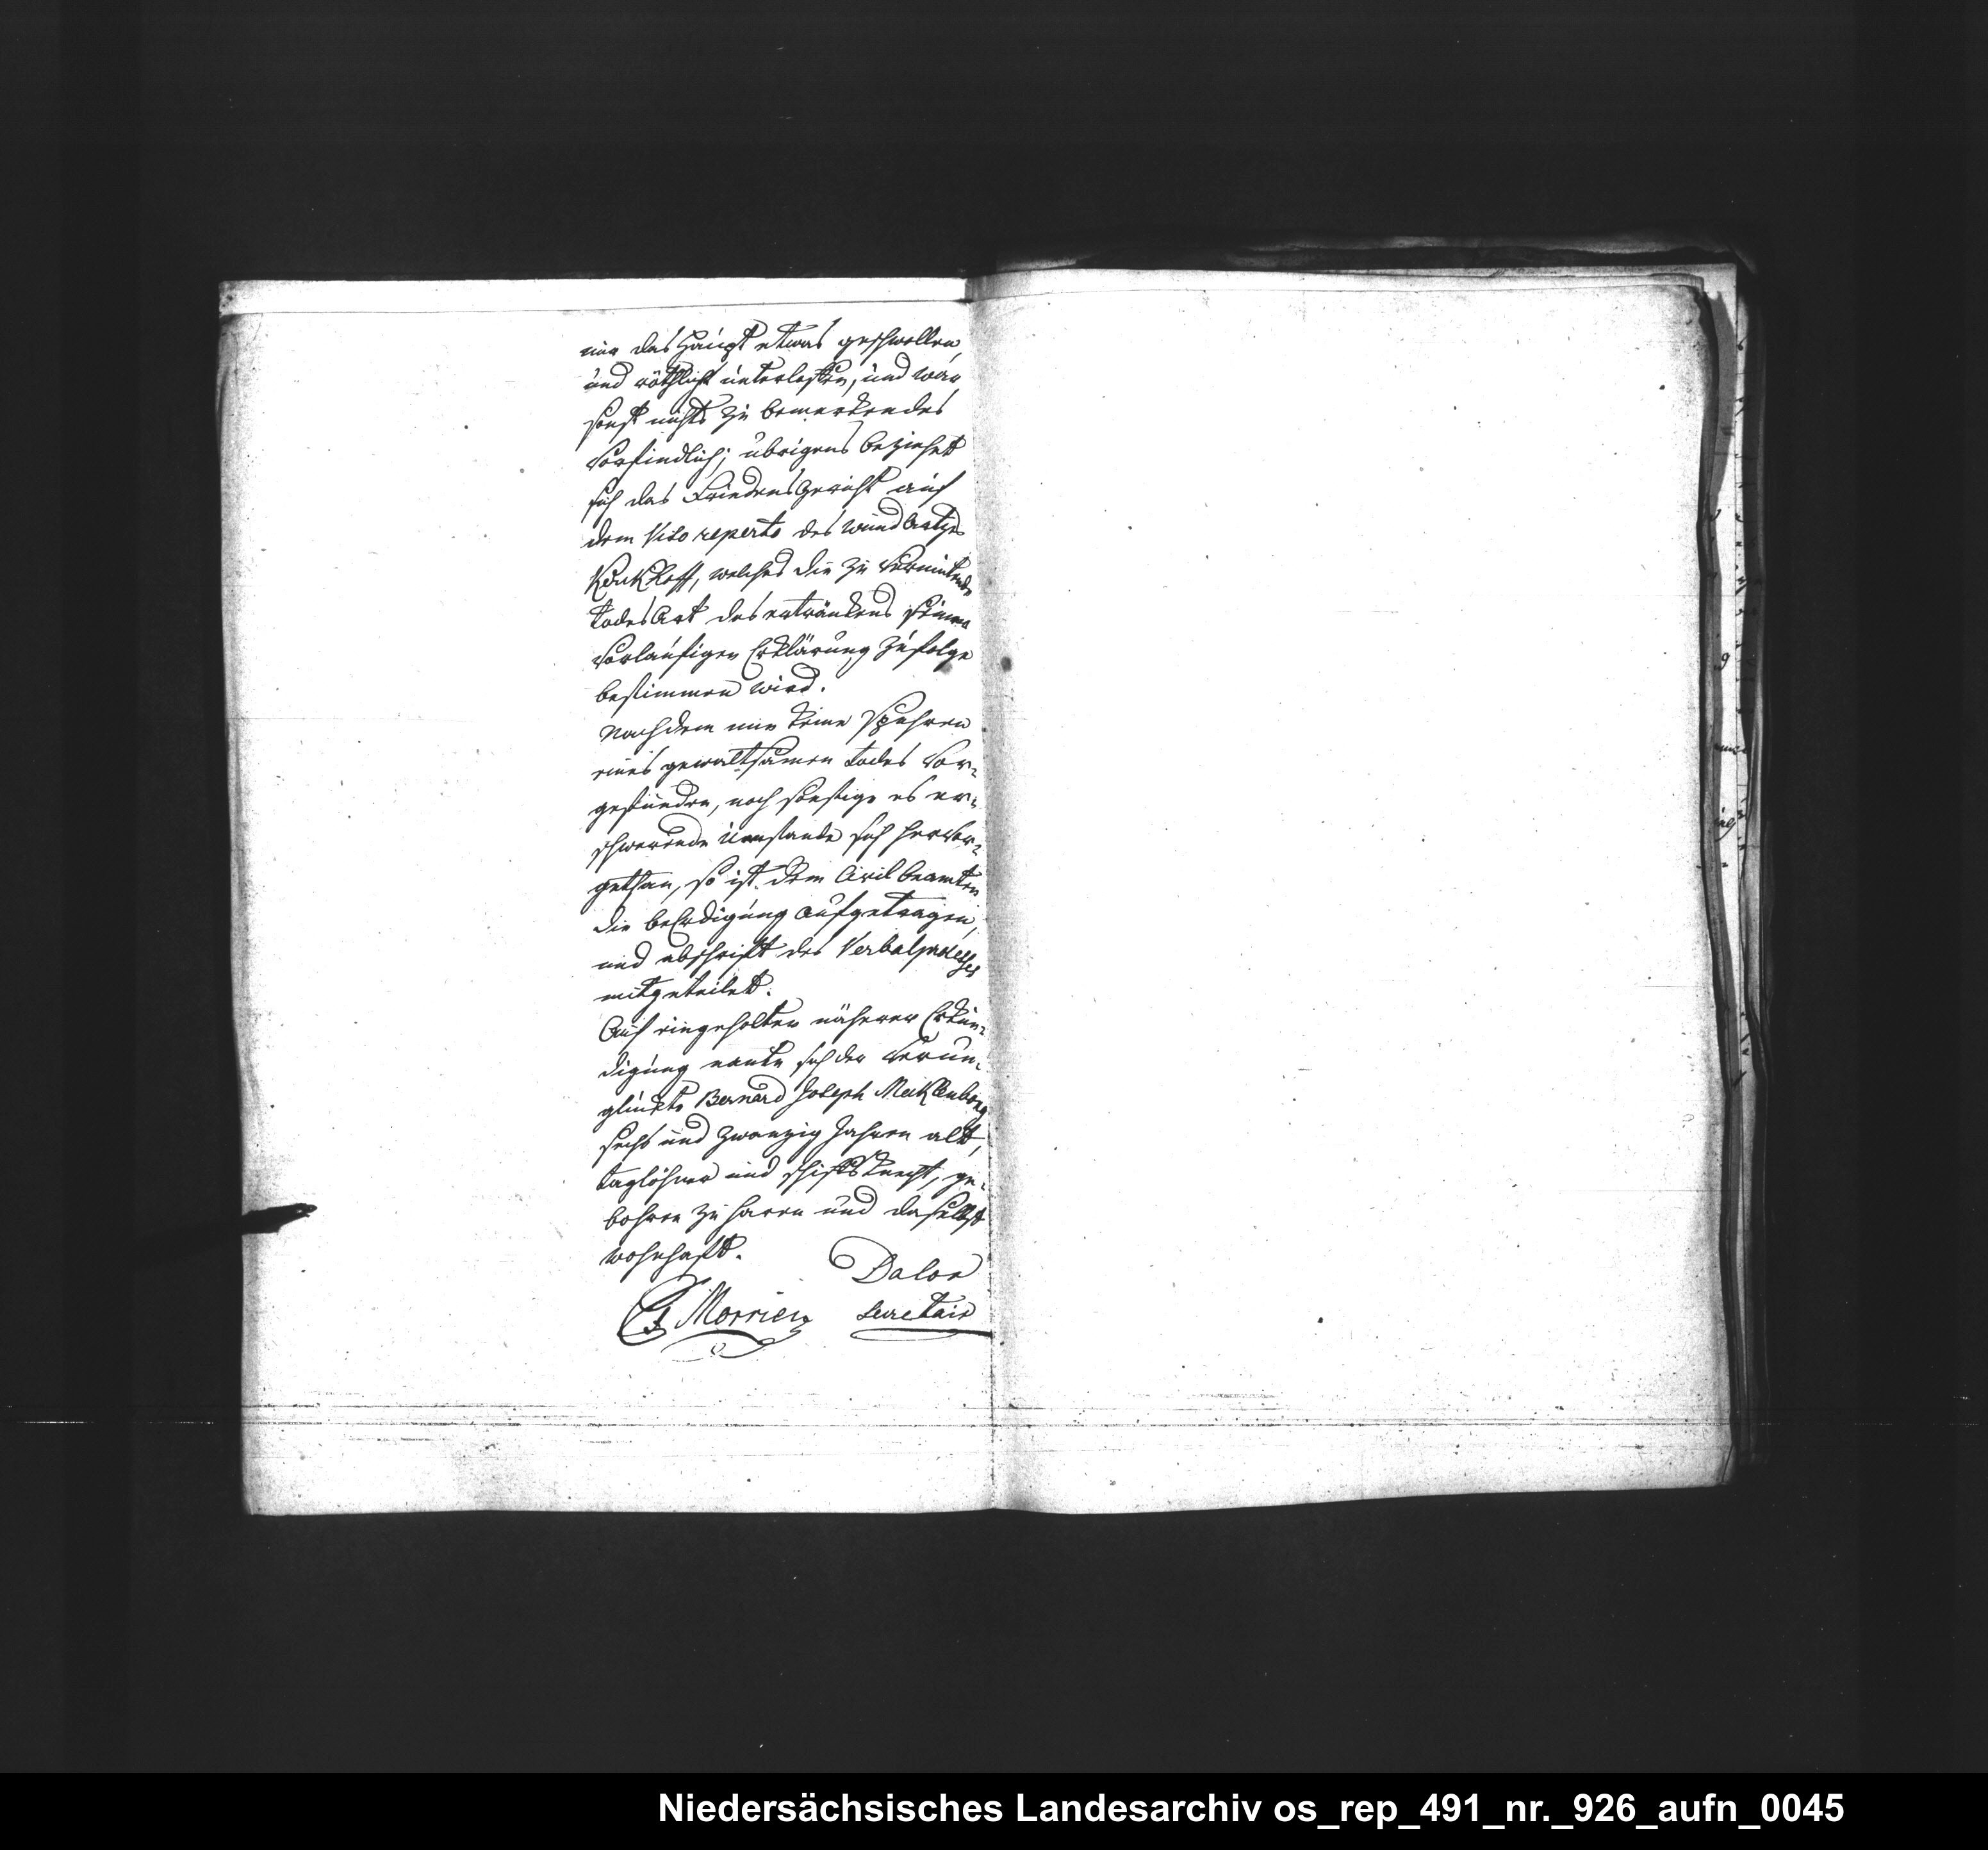 nur das Haupt etwas geschwollen,
und röthlich unterlaufen, und war
sonst nichts zu bemerkendes
vorfindlich; übrigens beziehet
sich das Friedensgericht auf
dem Viso reperto des wundartzes
Kerckhoff, welches die zu vermuthende
todesart des ertränkens seiner
vorläufigen Erklärung zufolge
bestimmen wird.
Nachdem nun keine Spuhren
eines gewaltsamen todes vor-
gefunden, noch sonstige es er-
schwerende Umstande sich hervor-
gethan, so ist dem Civil beamten
die beErdigung aufgetragen,
und abschrift des Verbalprocesses
mitgeteilet.
Auf eingeholten näheren Erkun-
digung nante sich der verun-
glückte Bernard Joseph Mecklenborg
sechs und zwanzig Jahren alt,
taglöhner und schiffsknecht, ge-
bohren zu Haren und daselbst
wohnhaft.
Morrien Dalon
Secretair
Niedersächsisches Landesarchiv os_rep_491_nr._926_aufn_0045